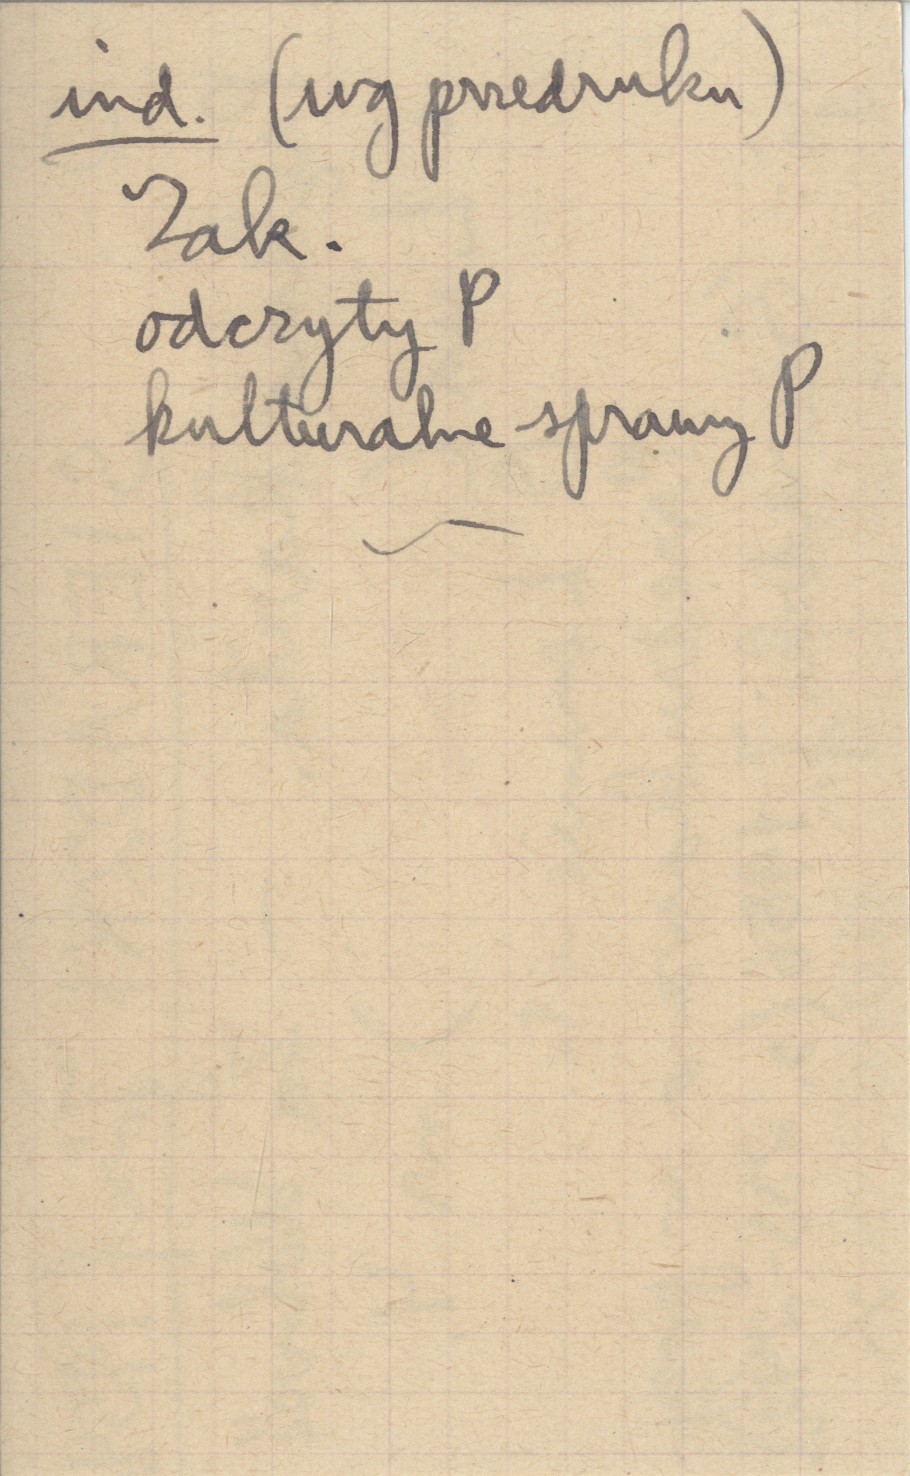 ind. (wg przedruku)
Zak.
odczyty P
kulturalne sprawy P